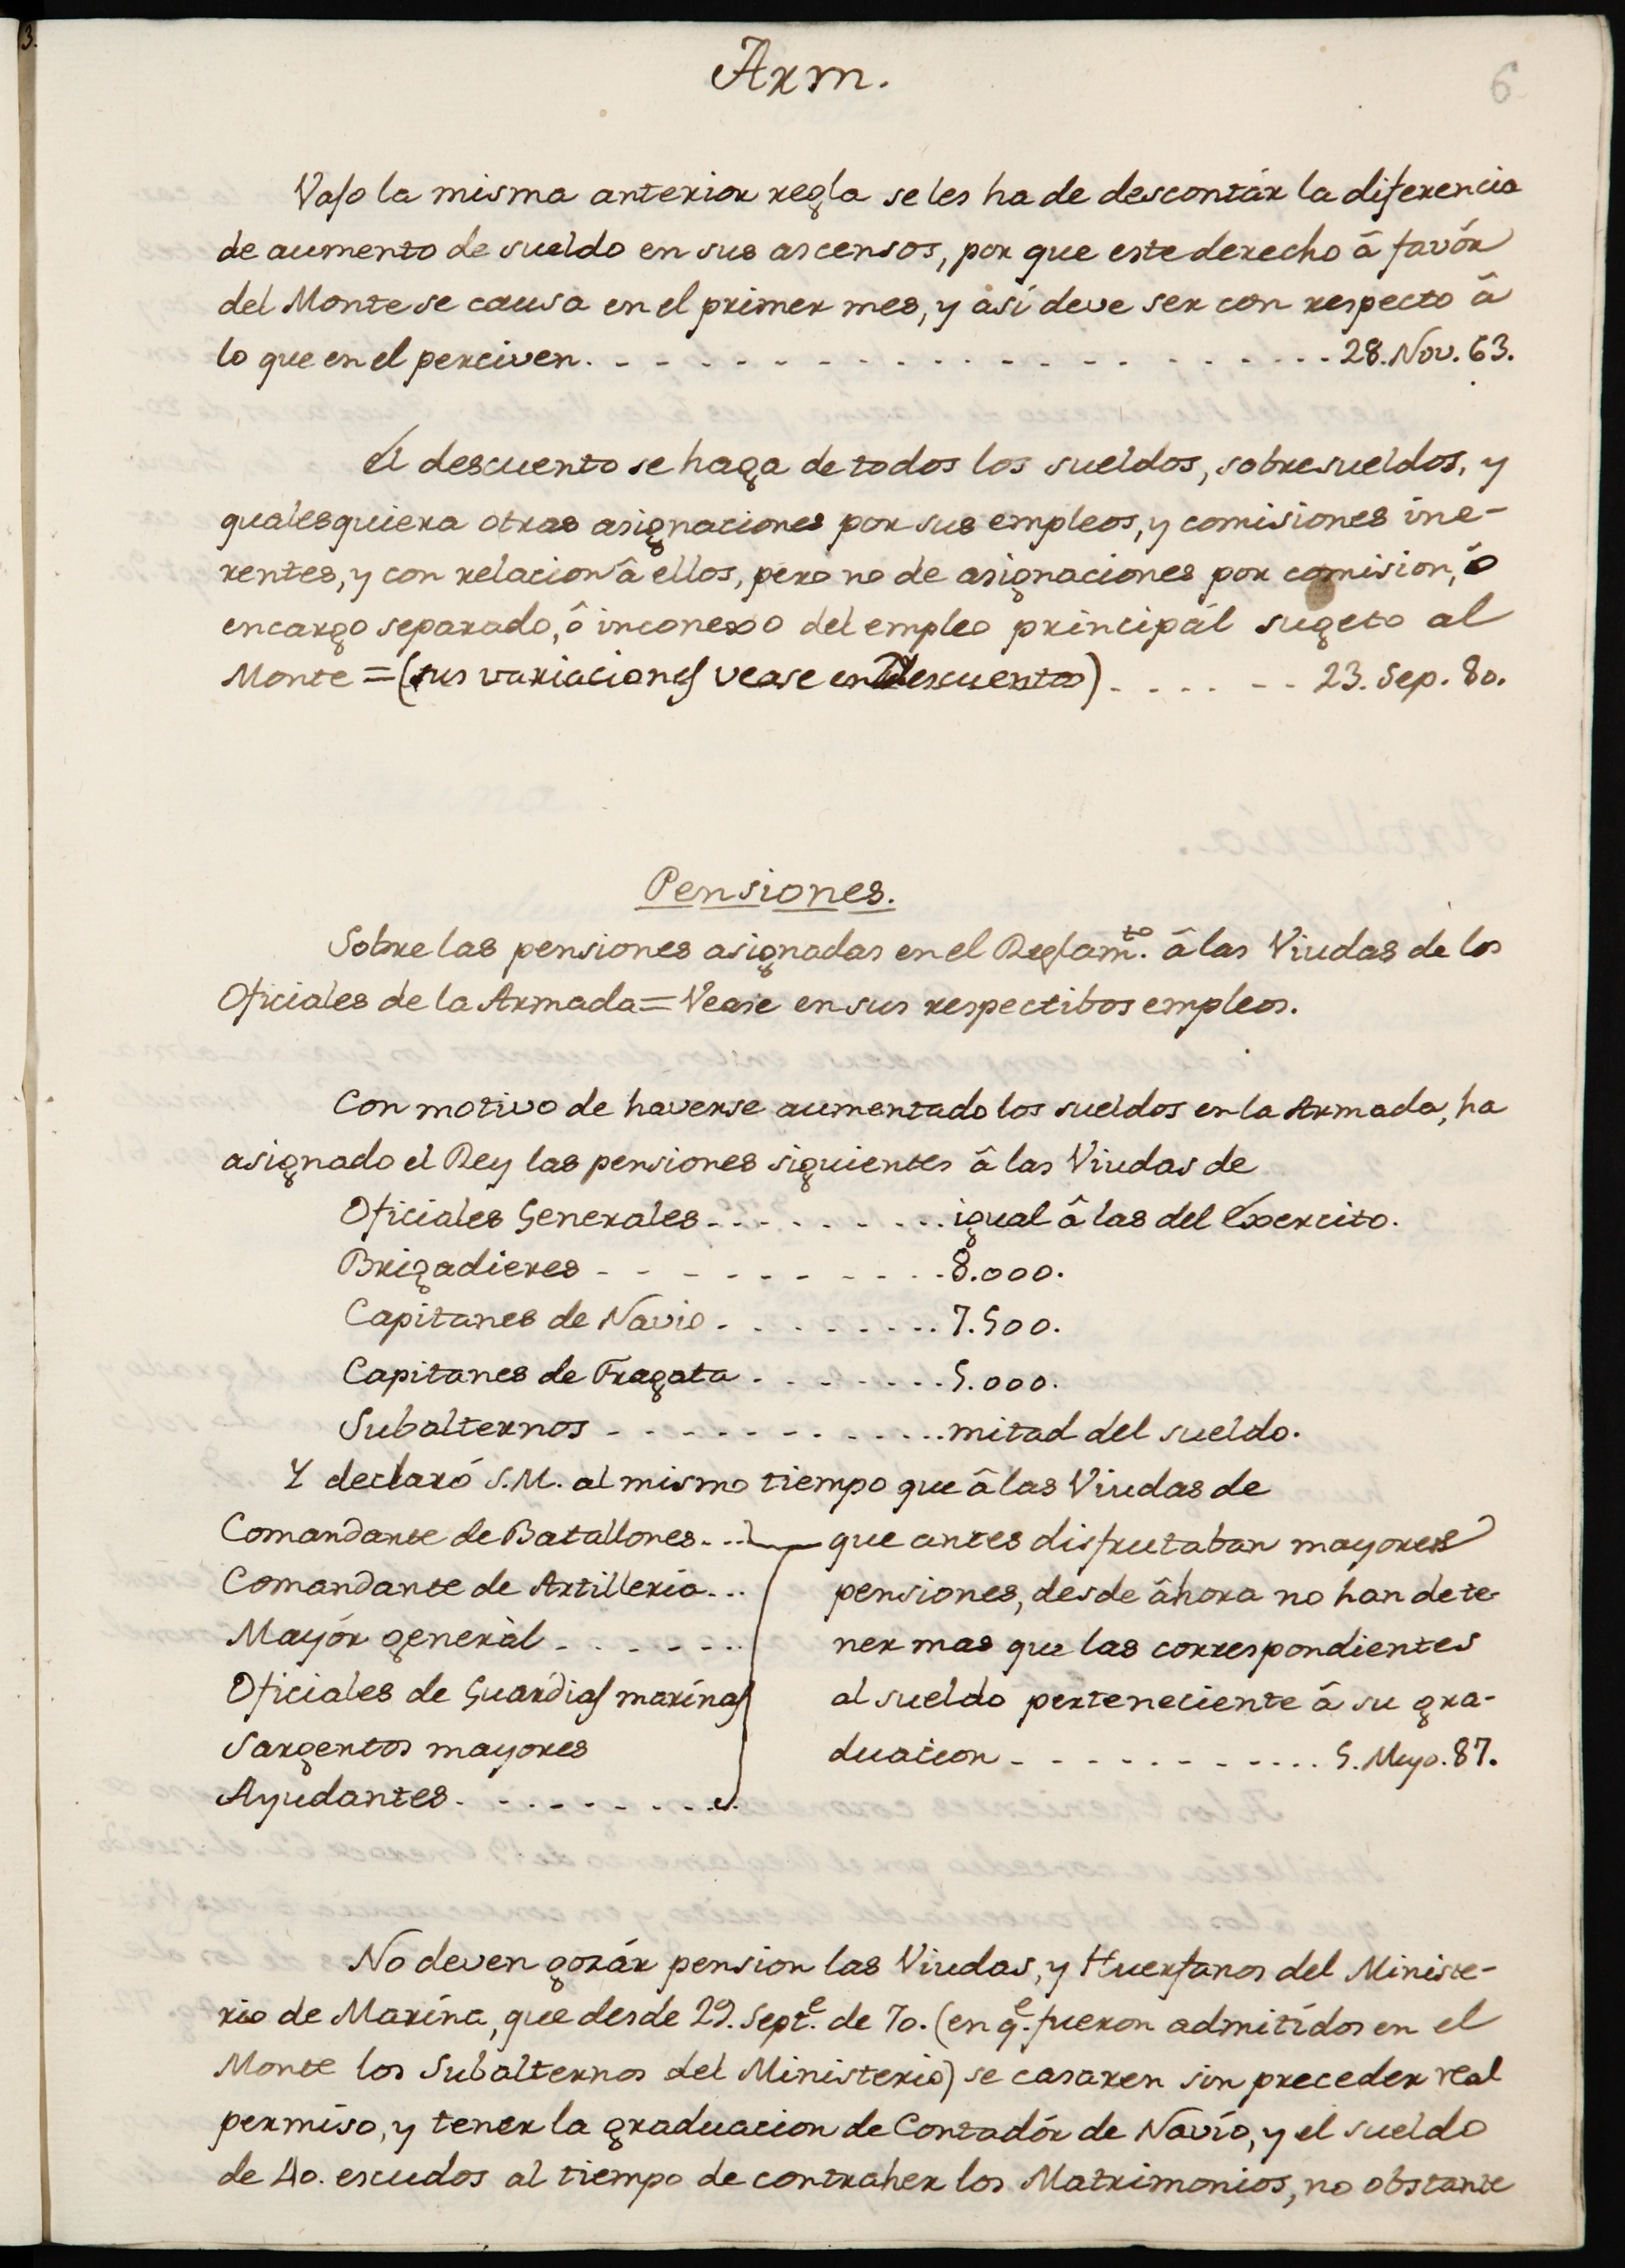 Arm.
6
Vajo la misma anterior regla se les ha de descontár la diferencia
de aumento de sueldo en sus ascensos, por que este derecho â favór
del Monte se causa en el primer mes, y así deve ser con respecto â
lo que en el perciven. - - - - - - - - - - - - - - - - - - - - 28. Nov. 63.
El descuento se haga de todos los sueldos, sobresueldos, y
qualesquiera otras asignaciones por sus empleos, y comisiones ine-
rentes, y con relacion â ellos, pero no de asignaciones por comision, ô
encargo separado, ô inconexo del empleo principál sugeto al
Monte = (sus variaciones vease en Descuento) . . . . . - - 23. Sep. 80.
Pensiones.
Sobre las pensiones asignadas en el Reglam.to â las Viudas de los
Oficiales de la Armada = Vease en sus respectibos empleos.
Con motivo de haverse aumentado los sueldos en la Armada, ha
asignado el Rey las pensiones siguientes â las Viudas de
Oficiales Generales - - - - - - - - - igual â las del Exercito.
Brigadieres - - - - - - - - - - - 8.000.
Capitanes de Navio - - - - - - - - - 7.500.
Capitanes de Fragata - - - - - - - - 5.000.
Subalternos - - - - - - - - - - - - - mitad del sueldo.
Y declaró S.M. al mismo tiempo que â las Viudas de
Comandante de Batallones - - - que antes disfrutaban mayores
Comandante de Artilleria - - - pensiones, desde âhora no han de te-
Mayór generàl - - - - - - - ner mas que las correspondientes
Oficiales de Guardias marínas al sueldo perteneciente â su gra-
Sargentos mayores duacion - - - - - - - - - - - - 5. Mayo. 87.
Ayudantes - - - - - - - - - -
No deven gozár pension las Viudas, y Huerfanos del Ministe-
rio de Marína, que desde 29. Sept.e de 70. (en q.e fueron admitídos en el
Monte los Subalternos del Ministerio) se casaren sin preceder real
permíso, y tener la graduacion de Contadór de Navío, y el sueldo
de 40. escudos al tiempo de contraher los Matrimonios, no obstante